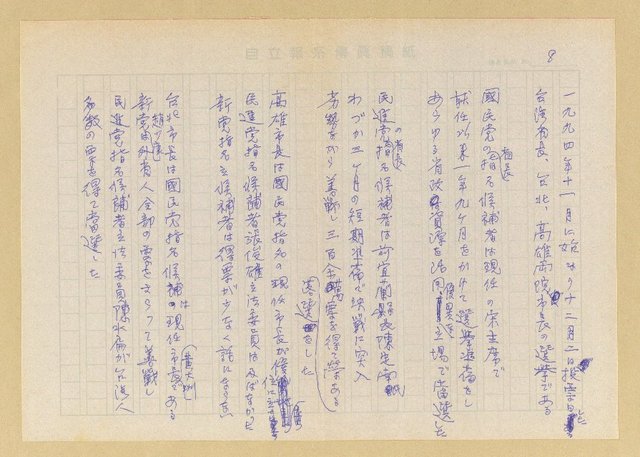 8
自立報系漫廣稿紙
一九九四年十一月に始まり十二月三日投票
台湾省長、台北、高雄両院市長の選挙である
国民党の省長指名候補者は現任の宋主席で
就任以来一年九ヶ月をかけて選挙準備をし
あらゆる省政資源を活用し優異な立場で当選した
民進党の省長指名候補者は前宜蘭縣長陳定南
わづか三ヶ月の短期準備で決戦に突入
劣勢ながら善戦し三百余萬票を得て
落選をした
高雄市長は国民党指名の現任市長が
民進党指名候補者張俊雄立法委員は及ばなかった
新党指名立候補者は得票が少なく話にならない
台北市長は国民党指名候補は現任市長である
黄大洲
新党は趙少康外省人全部の票をさらって善戦し
民進党指名候補者立法委員陳水扁が台湾人
多数の票を得て当選した